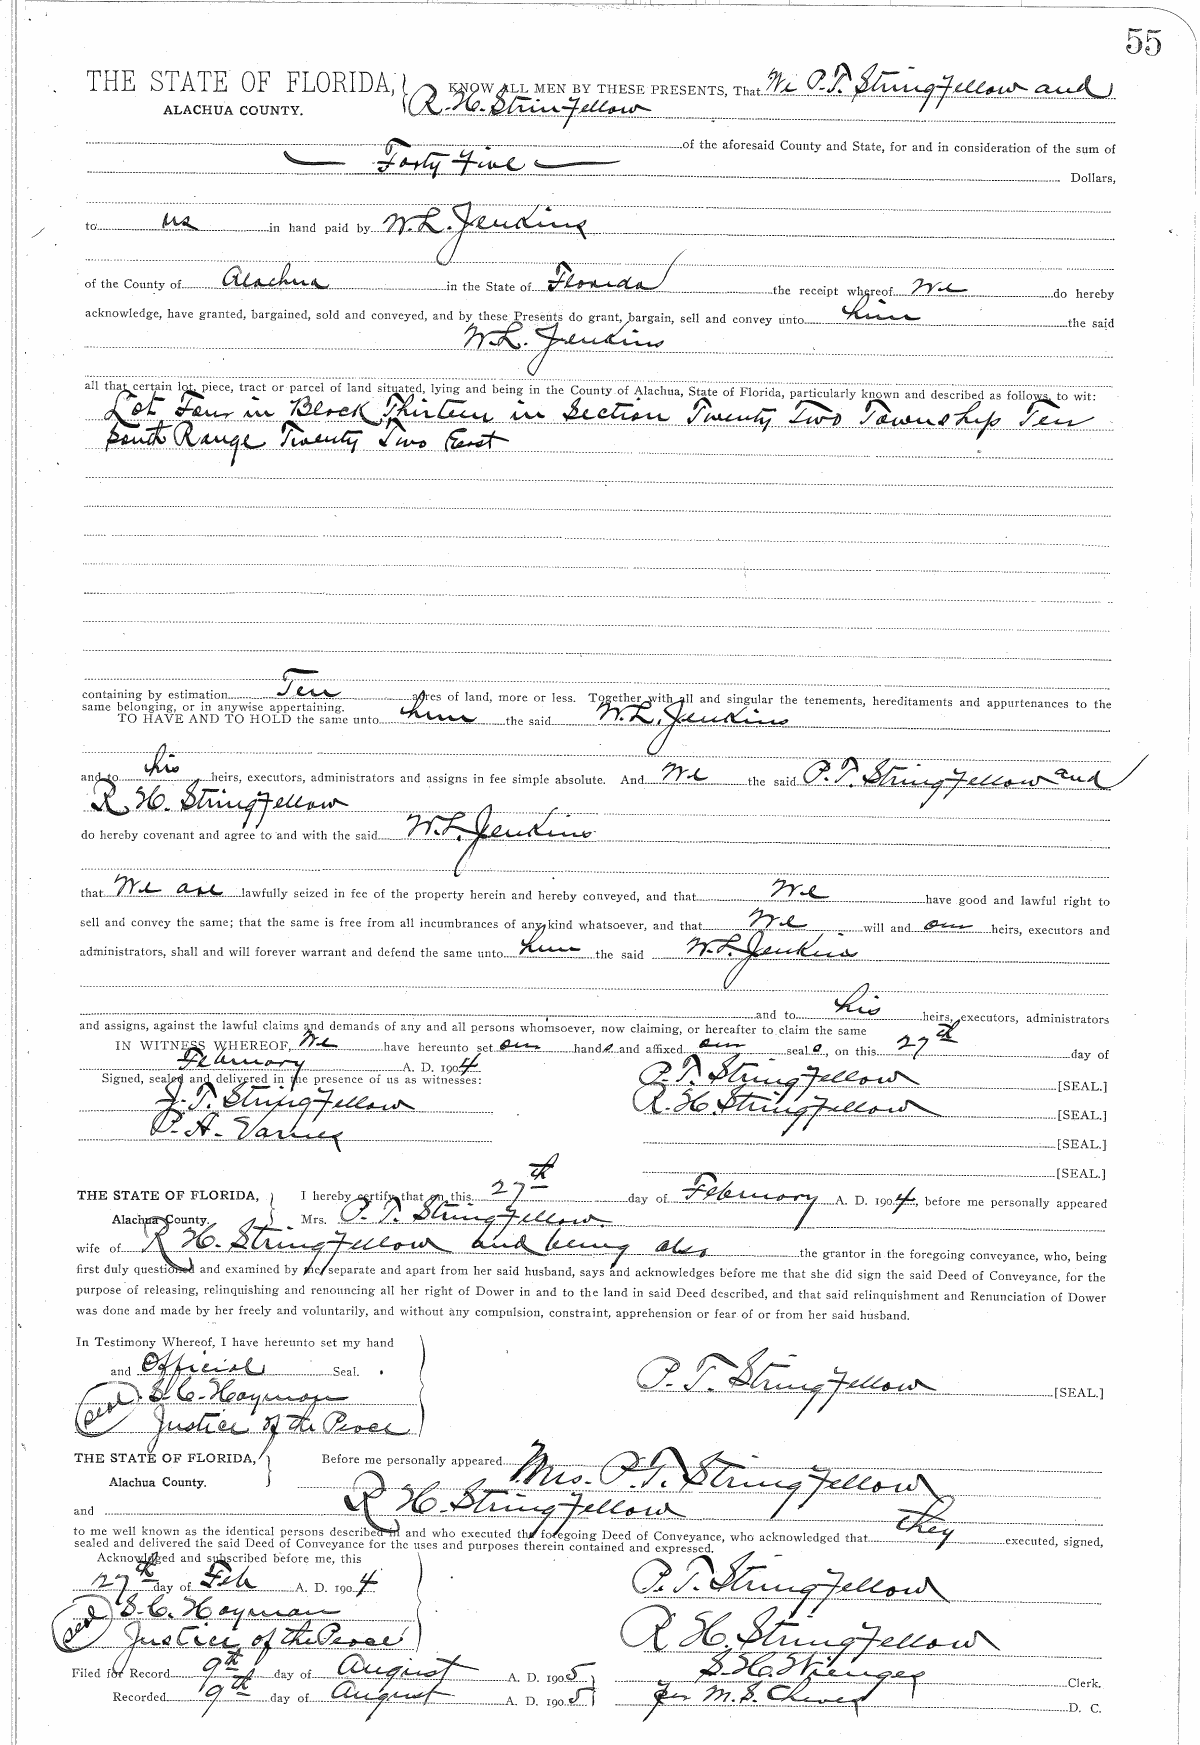 55
THE STATE OF FLORIDA, KNOW ALL MEN BY THESE PRESENTS, That We P.T. Stringfellow and
ALACHUA COUNTY. R. H. Strinfellow
of the aforesaid County and State, for and in consideration of the sum of
Forty Five Dollars,
to us in hand paid by W. L. Jenkins
of the County of Alachua in the State of Florida the receipt whereof We do hereby
acknowledge, have granted, bargained, sold and conveyed, and by these Presents do grant, bargain, sell and convey unto him the said
W. L. Jenkins
all that certain lot, piece, tract or parcel of land situated, lying and being in the County of Alachua, State of Florida, particularly known and described as follows, to wit:
Lot Four in Block Thirteen in Section Twenty Two Township Ten
South Range Twenty Two East
containing by estimation Ten acres of land, more or less. Together with all and singular the tenements, hereditaments and appurtenances to the
same belonging, or in anywise appertaining.
TO HAVE AND TO HOLD the same unto him the said W. L. Jenkins
and to his heirs, executors, administrators and assigns in fee simple absolute. And We the said P. T. Stringfellow and
R. H. Stringfellow
do hereby covenant and agree to and with the said W. L. Jenkins
that We are lawfully seized in fee of the property herein and hereby conveyed, and that We have good and lawful right to
sell and convey the same; that the same is free from all incumbrances of any kind whatsoever, and that We will and our heirs, executors and
administrators, shall and will forever warrant and defend the same unto him the said W. L. Jenkins
and to his heirs, executors, administrators
and assigns, against the lawful claims and demands of any and all persons whomsoever, now claiming, or hereafter to claim the same
IN WITNESS WHEREOF, We have hereunto set our hands and affixed our seals, on this 27th day of
February A. D. 1904
Signed, sealed and delivered in the presence of us as witnesses: P. T. Stringfellow [SEAL.]
J. T. Stringfellow R. H. Stringfellow [SEAL.]
P. A. [SEAL.]
[SEAL.]
THE STATE OF FLORIDA, I hereby certify that on this 27th day of February A. D. 1904, before me personally appeared
Alachua County. Mrs. P. T. Stringfellow
wife of R H. Stringfellow and being also the grantor in the foregoing conveyance, who, being
first duly questioned and examined by me, separate and apart from her said husband, says and acknowledges before me that she did sign the said Deed of Conveyance, for the
purpose of releasing, relinquishing and renouncing all her right of Dower in and to the land in said Deed described, and that said relinquishment and Renunciation of Dower
was done and made by her freely and voluntarily, and without any compulsion, constraint, apprehension or fear of or from her said husband.
In Testimony Whereof, I have hereunto set my hand
and Official Seal. P. T. Stringfellow [SEAL.]
seal S. C. Hayman
Justice of the Peace
THE STATE OF FLORIDA, Before me personally appeared Mrs. P. T. Stringfellow
Alachua County.
and R H. Stringfellow
to me well known as the identical persons described in and who executed the foregoing Deed of Conveyance, who acknowledged that they executed, signed,
sealed and delivered the said Deed of Conveyance for the uses and purposes therein contained and expressed.
Acknowledged and subscribed before me, this
27th day of Feb A. D. 1904 P. T. Stringfellow
seal S. C. Hayman
Justice of the Peace R H. Stringfellow
Filed for Record 9th day of August A. D. 1905 S. H. Wienges Clerk.
Recorded 9th day of August A. D. 1905 per M. S. D. C.